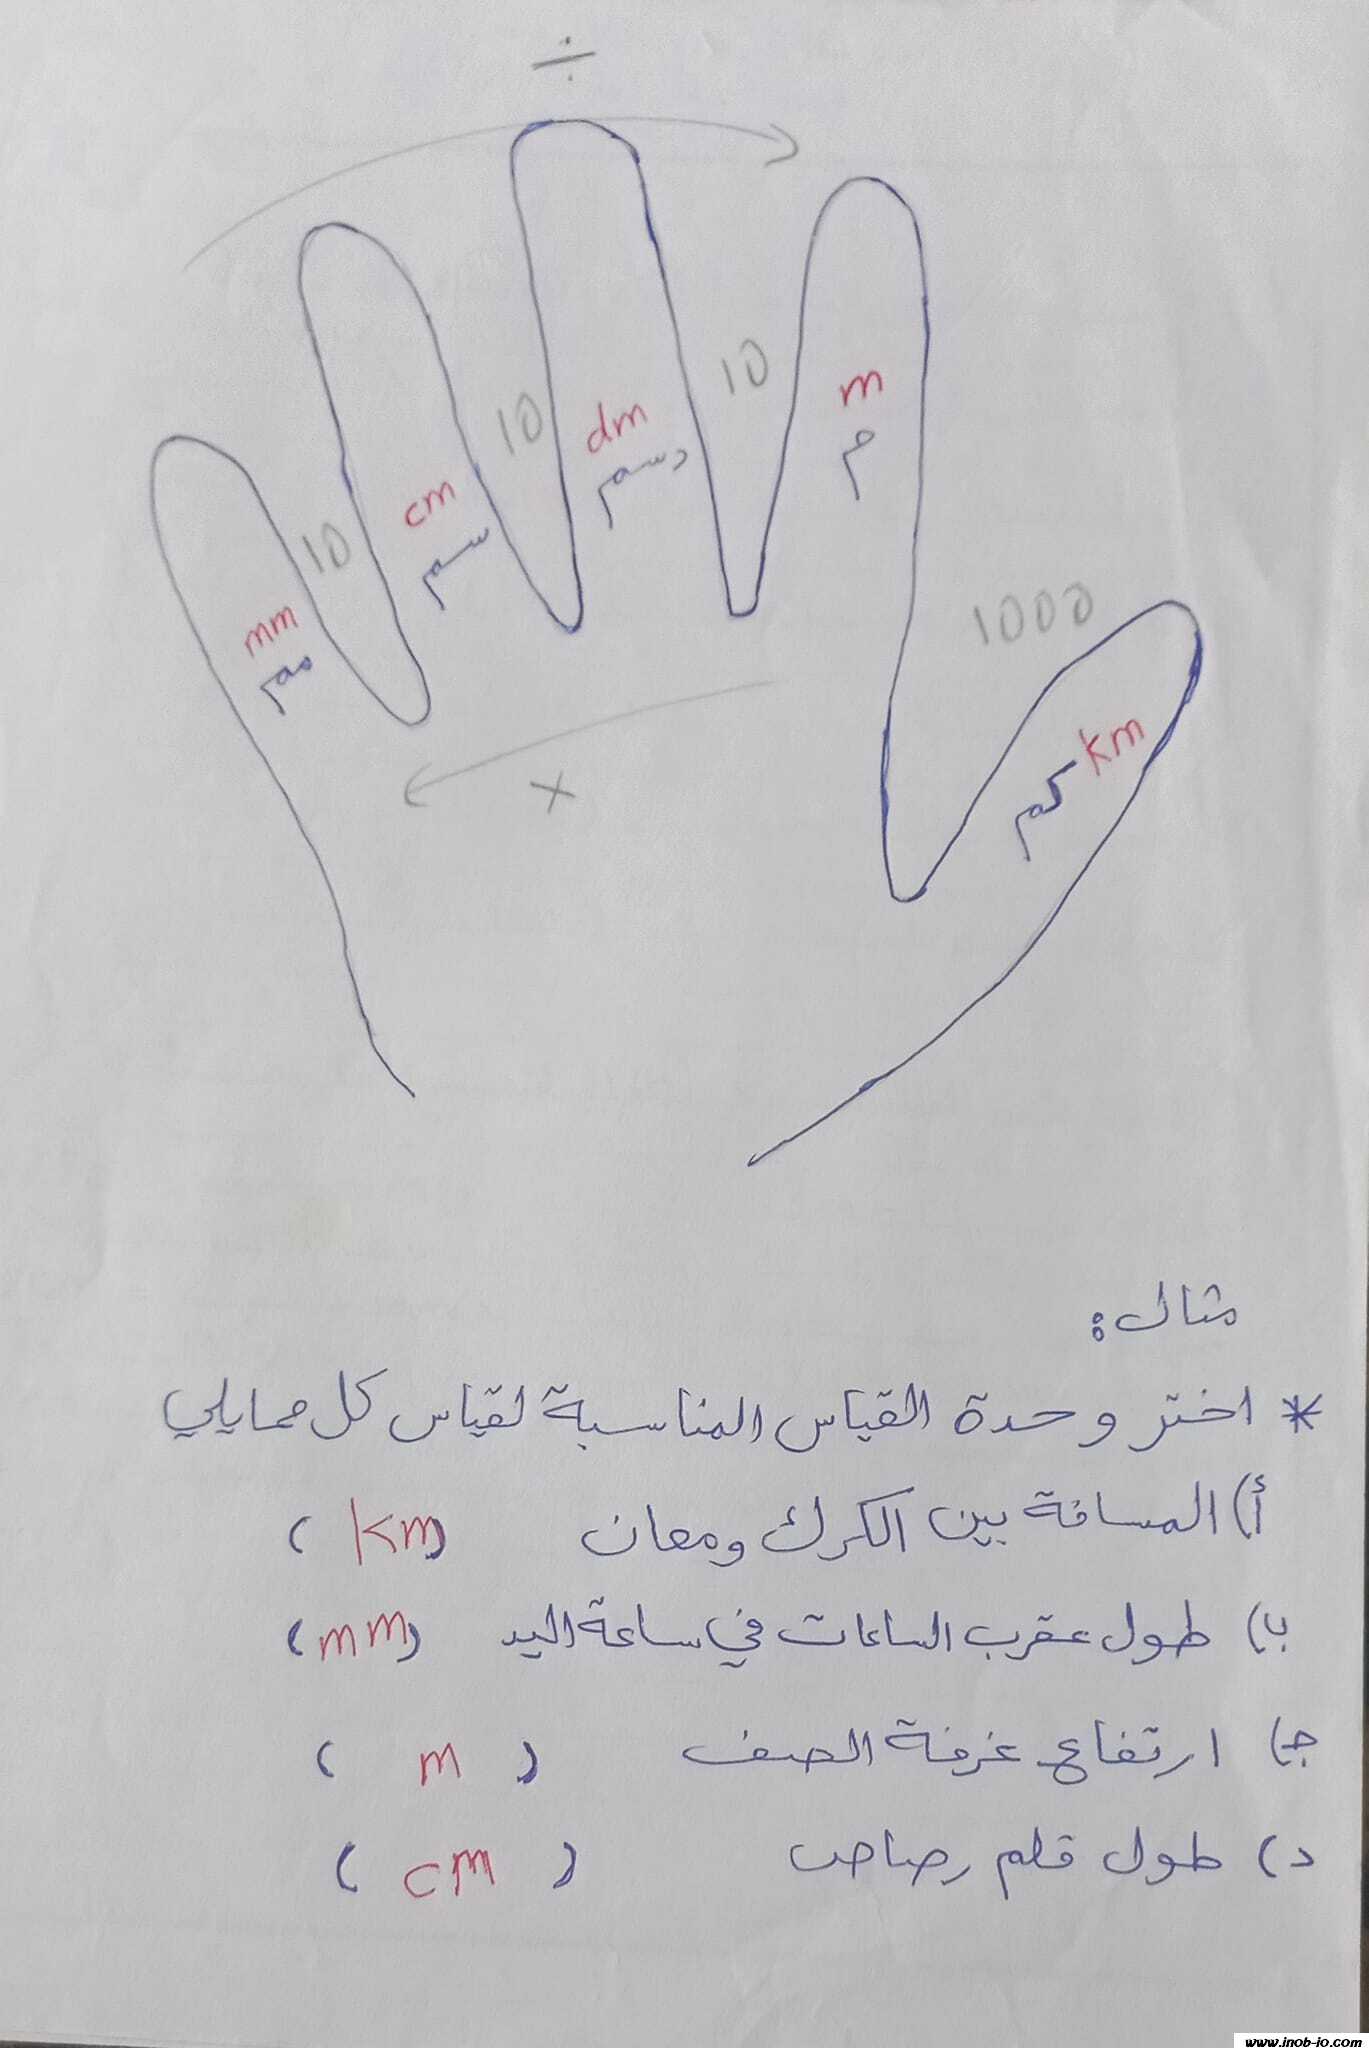 ÷
10
10
10
1000
mm
مم
cm
سم
dm
دسم
m
م
km
كم
×
مثال:
* اختر وحدة القياس المناسبة لقياس كل ممايلي
أ) المسافة بين الكرك ومعان ( km )
ب) طول عقرب الساعات في ساعة اليد ( mm )
ج) ارتفاع غرفة الصف ( m )
د) طول قلم رصاص ( cm )
www.inob-jo.com